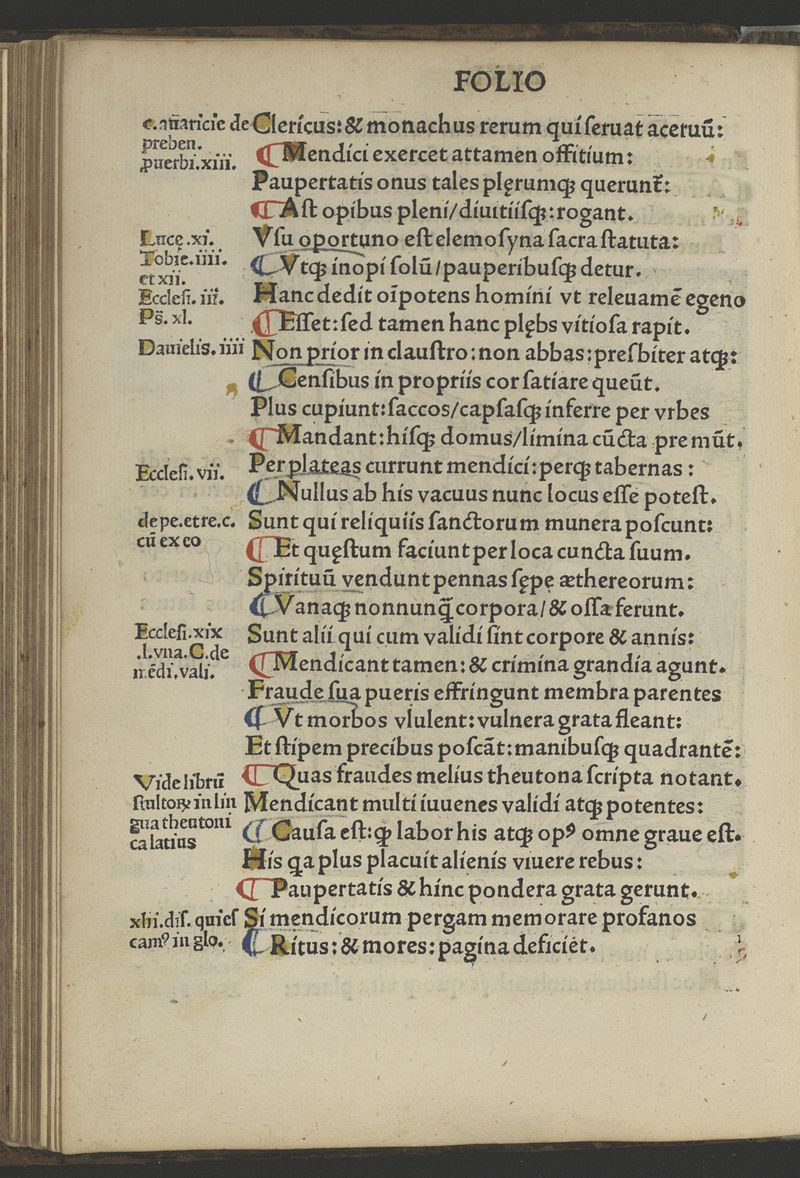 FOLIO
c. auaricie de
preben.
ꝓuerbi.xiii.
Clericus: & monachus rerum qui seruat aceruũ:
¶ Mendici exercet attamen offitium:
Paupertatis onus tales plęrumqꝫ querunt̃:
¶ Ast opibus pleni/diuitiisqꝫ: rogant.
Luce .xi.
Tobie.iiii.
et xii.
Ecclesi. iii.
Ps̃. xl.
Vsu oportuno est elemosyna sacra statuta:
¶ Vtqꝫ inopi solũ/pauperibusqꝫ detur.
Hanc dedit oĩpotens homini vt releuamẽ egeno
¶ Esset: sed tamen hanc plębs vitiosa rapit.
Danielis. iiii
Non prior in claustro: non abbas: presbiter atqꝫ:
¶ Censibus in propriis cor satiare queũt.
Plus cupiunt: saccos/capsasqꝫ inferre per vrbes
¶ Mandant: hisqꝫ domus/limina cũcta premũt.
Ecclesi. vii.
Per plateas currunt mendici: perqꝫ tabernas:
¶ Nullus ab his vacuus nunc locus esse potest.
de pe. et re. c.
cũ ex eo
Sunt qui reliquiis sanctorum munera poscunt:
¶ Et quęstum faciunt per loca cuncta suum.
Spirituũ vendunt pennas sępe æthereorum:
¶ Vanaqꝫ nonnunq̃ corpora/& ossa ferunt.
Ecclesi. xix
.l. vna. C. de
mẽdi. vali.
Sunt alii qui cum validi sint corpore & annis:
¶ Mendicant tamen: & crimina grandia agunt.
Fraude sua pueris effringunt membra parentes
¶ Vt morbos vlulent: vulnera grata fleant:
Et stipem precibus poscãt: manibusqꝫ quadrantẽ:
¶ Quas fraudes melius theutona scripta notant.
Vide librũ
stultoꝝ in lin
gua theutoni
ca latius
Mendicant multi iuuenes validi atqꝫ potentes:
¶ Causa est: ꝙ labor his atqꝫ opꝰ omne graue est.
His qa plus placuit alienis viuere rebus:
¶ Paupertatis & hinc pondera grata gerunt.
xlii. dis. quiesf
camꝰ in glo.
Si mendicorum pergam memorare profanos
¶ Ritus: & mores: pagina deficiet.